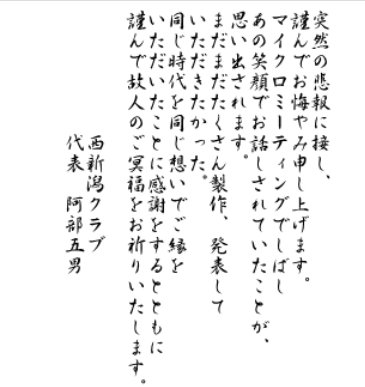 突然の悲報に接し、
謹んでお悔やみ申し上げます。
マイクロミーティングでしばし
あの笑顔でお話しされていたことが、
思い出されます。
まだまだたくさん製作、発表して
いただきたかった。
同じ時代を同じ想いでご縁を
いただいたことに感謝をするとともに
謹んで故人のご冥福をお祈りいたします。
西新潟クラブ
代表　阿部五男